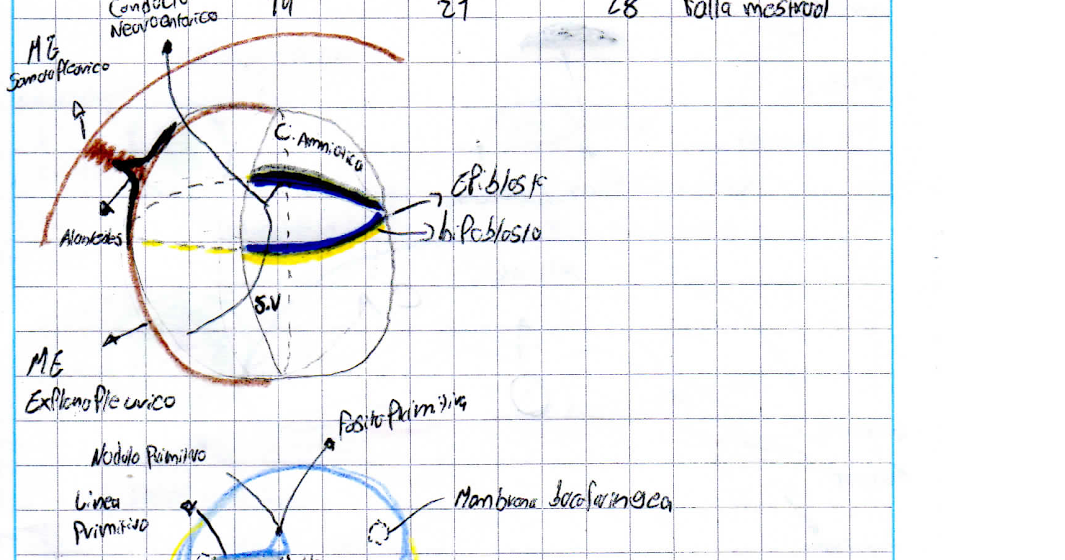 Conducto
Neuroenterico
14 21 28 Falla mestrual
ME
Somatopleurico
C. Amniotica
Epiblost
hipoblosto
Alantoides
S.V
ME
Explanopleurico
Fosita Primitiva
Nodulo Primitivo
Linea
Primitivo
Membrana bocofaringea